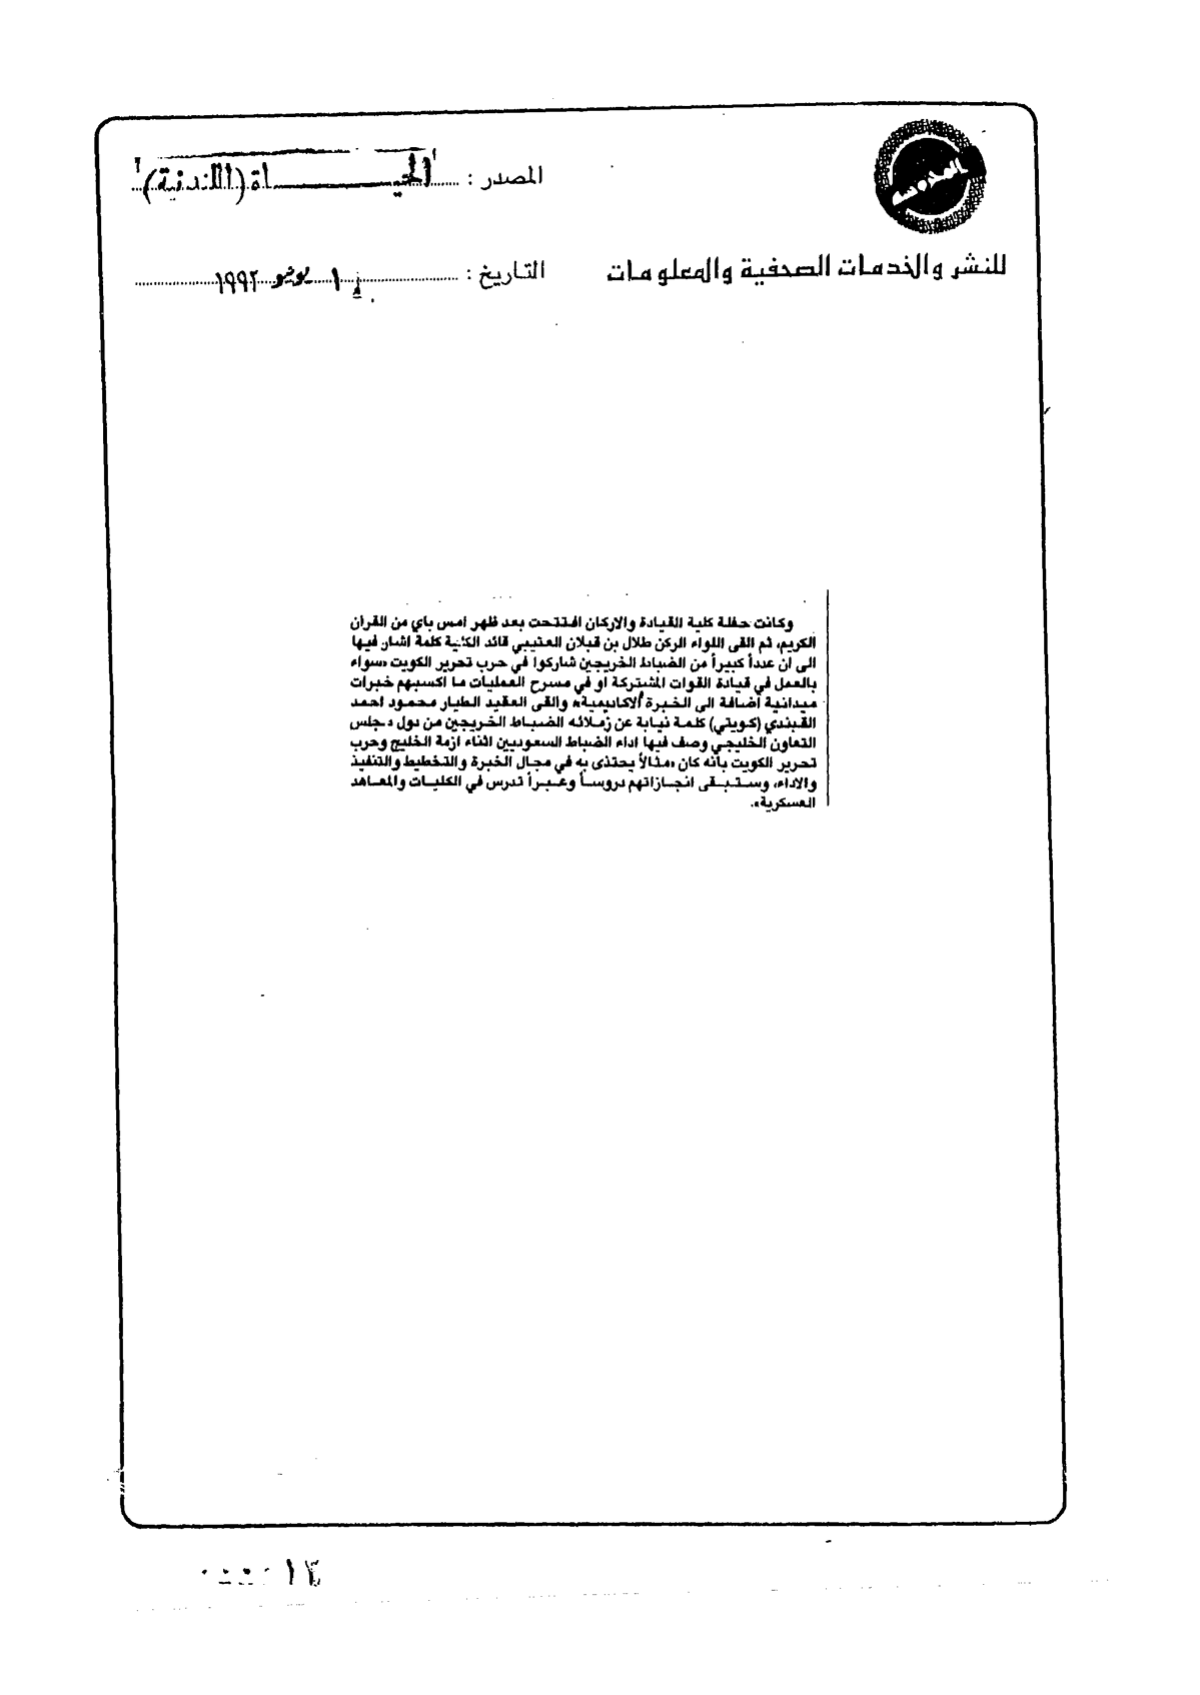 المصدر : الحيـــاة (اللندنية)
للنشر والخدمات الصحفية والمعلومات
التاريخ : يونيو ١٩٩٢
وكانت حفلة كلية القيادة والاركان افتتحت بعد ظهر امس باي من القرآن
الكريم، ثم القى اللواء الركن طلال بن قبلان العتيبي قائد الكلية كلمة اشار فيها
الى ان عدداً كبيراً من الضباط الخريجين شاركوا في حرب تحرير الكويت «سواء
بالعمل في قيادة القوات المشتركة او في مسرح العمليات ما اكسبهم خبرات
ميدانية اضافة الى الخبرة الاكاديمية» والقى العقيد الطيار محمود احمد
القبندي (كويتي) كلمة نيابة عن زملائه الضباط الخريجين من دول مجلس
التعاون الخليجي وصف فيها اداء الضباط السعوديين اثناء ازمة الخليج وحرب
تحرير الكويت بأنه كان «مثالاً يحتذى به في مجال الخبرة والتخطيط والتنفيذ
والاداء، وستـبـقى انجـازاتهم دروسـاً وعـبـراً تدرس في الكليـات والمعـاهد
العسكرية».